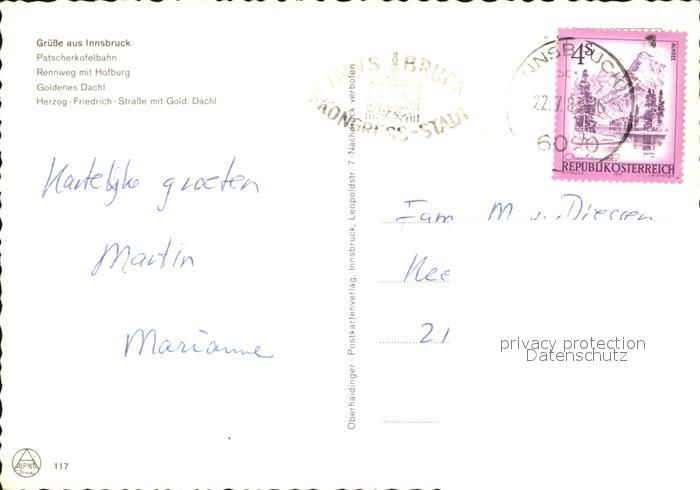 Grüße aus Innsbruck
Patscherkofelbahn
Rennweg mit Hofburg
Goldenes Dachl
Herzog-Friedrich-Straße mit Gold. Dachl
INNSBRUCK
KONGRESS-STADT
INNSBRUCK
22.7.8
6020
4S
ALMSEE
REPUBLIK ÖSTERREICH
Hartelijke groeten
Martin
Marianne
Oberhaidinger - Postkartenverlag, Innsbruck, Leopoldstr. 7 - Nachdruck verboten
Fam M v. Diessen
Nee
21
privacy protection
Datenschutz
ALPINA
117